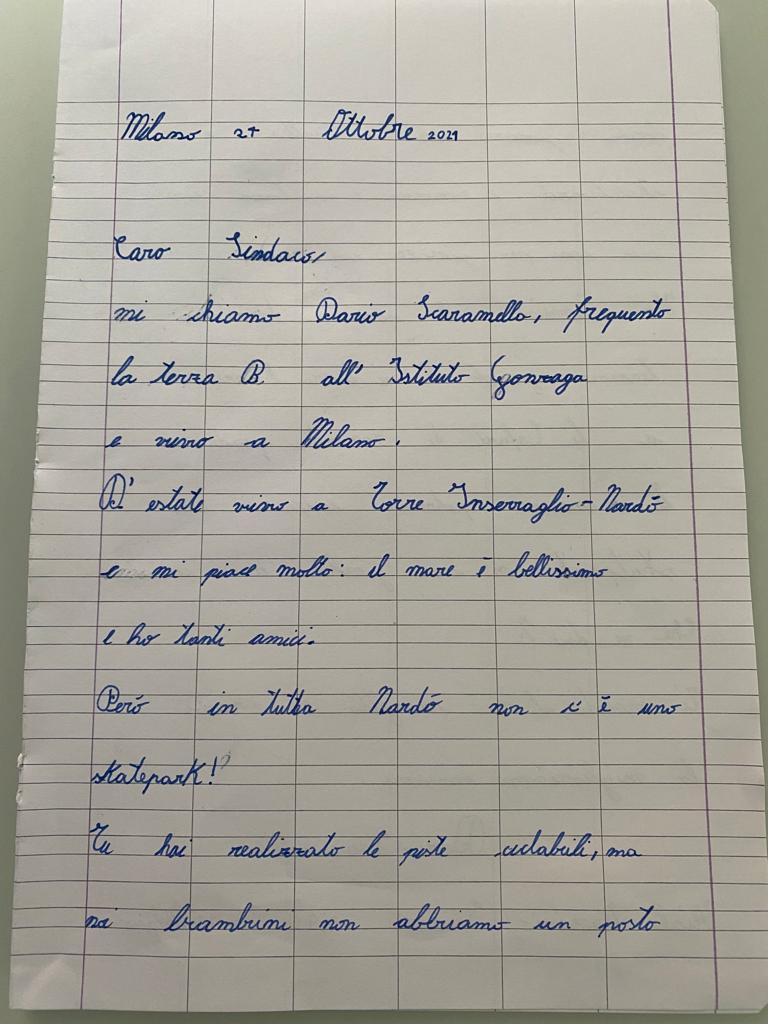 Milano 27 Ottobre 2021
Caro Sindaco,
mi chiamo Dario Scaramella, frequento
la terza B all' Istituto Gonzaga
e vivo a Milano.
D' estate vivo a Torre Inserraglio-Nardò
e mi piace molto: il mare è bellissimo
e ho tanti amici.
Però in tutta Nardò non c'è uno
skatepark!
Tu hai realizzato le piste ciclabili, ma
noi brambini non abbiamo un posto